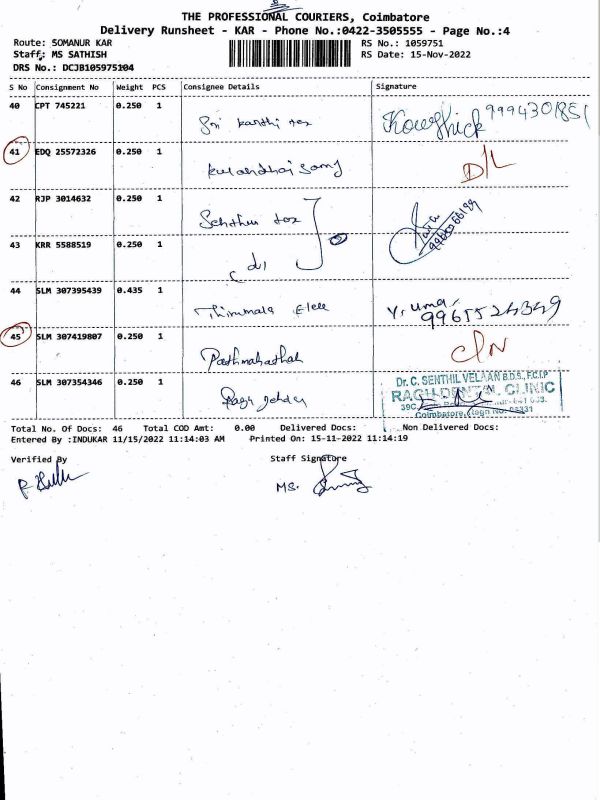 THE PROFESSIONAL COURIERS, Coimbatore
Delivery Runsheet - KAR - Phone No.:0422-3505555 - Page No.:4
Route: SOMANUR KAR
RS No.: 1059751
Staff: MS SATHISH
RS Date: 15-Nov-2022
DRS No.: DCJB105975104
S No Consignment No Weight PCS Consignee Details Signature
40 CPT 745221 0.250 1 Sri Karthi tex Kowshick 9994301851
41 EDQ 25572326 0.250 1 Kulandhai samy D/L
42 RJP 3014632 0.250 1 tex
43 KRR 5588519 0.250 1
44 SLM 307395439 0.435 1 Thirumala Elec Y. Uma 9965524349
45 SLM 307419807 0.250 1 C/N
46 SLM 307354346 0.250 1
Dr. C. SENTHIL VELAAN B.D.S., F.C.I.P
RAGH DENTAL CLINIC
Total No. Of Docs: 46 Total COD Amt: 0.00 Delivered Docs: Non Delivered Docs:
Entered By :INDUKAR 11/15/2022 11:14:03 AM Printed On: 15-11-2022 11:14:19
Verified By
Staff Signature
MS.